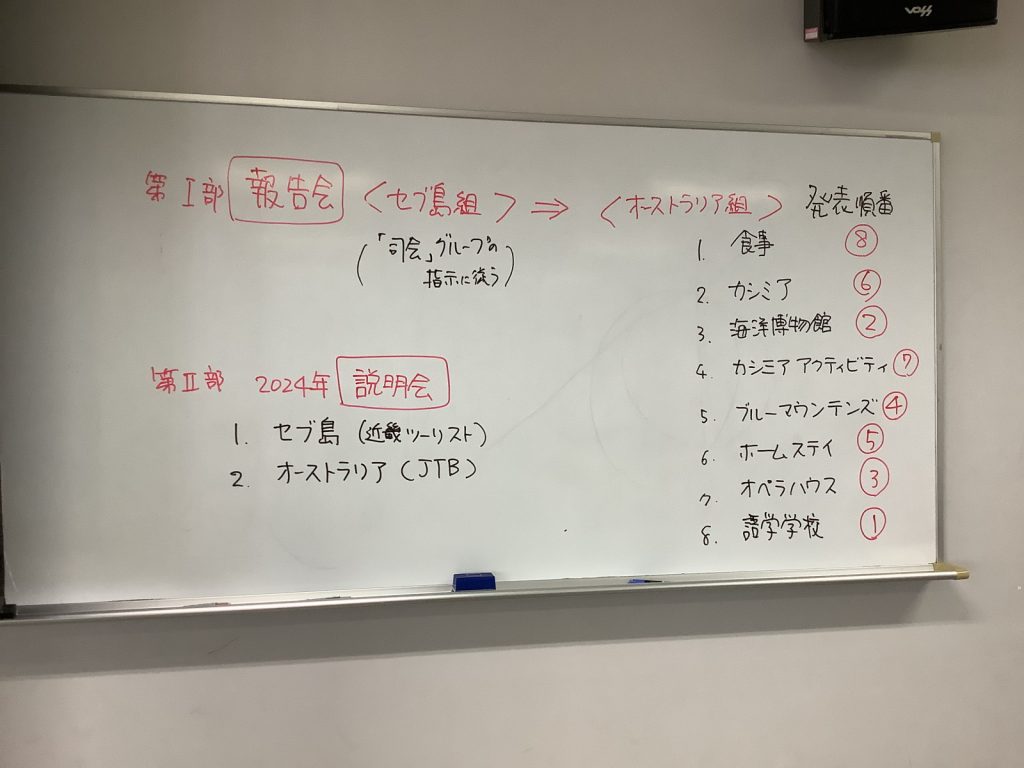 第I部 報告会 〈セブ島組〉 ⇒ 〈オーストラリア組〉 発表順番
(「司会」グループの
指示に従う)
1. 食事 ⑧
2. カシミア ⑥
3. 海洋博物館 ②
4. カシミア アクティビティ ⑦
5. ブルーマウンテンズ ④
6. ホームステイ ⑤
7. オペラハウス ③
8. 語学学校 ①
第II部 2024年 説明会
1. セブ島 (近畿ツーリスト)
2. オーストラリア (JTB)